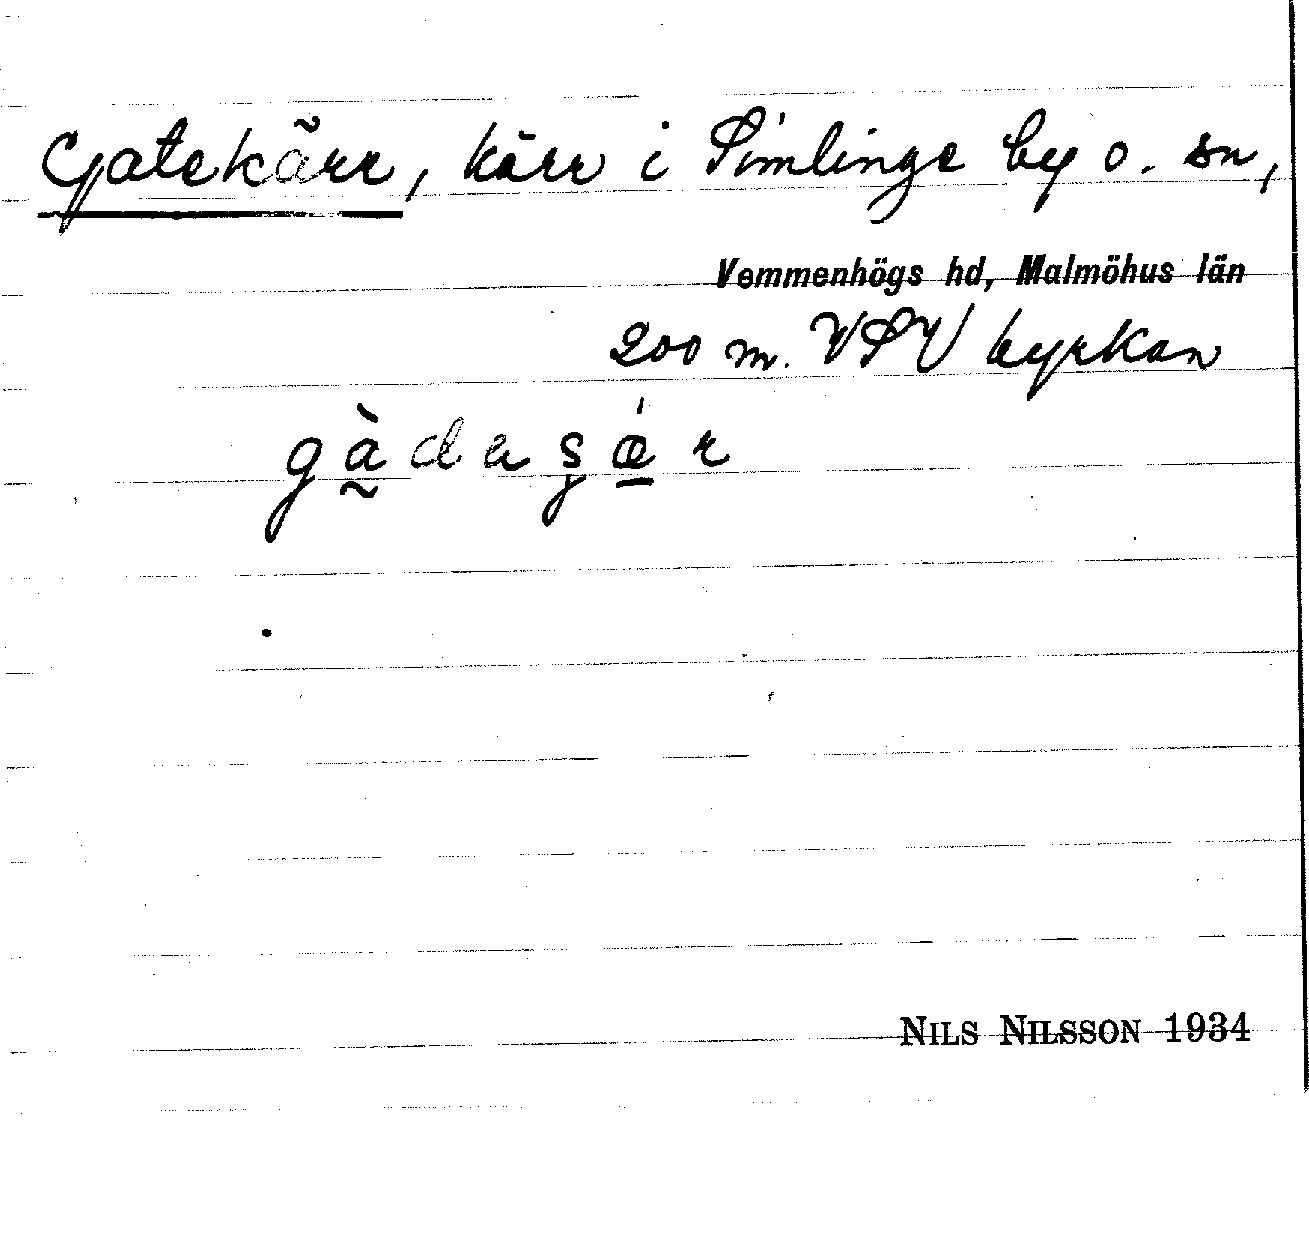 Gatekärr, kärr i Simlinge by o. sn,
Vemmenhögs hd, Malmöhus län
200 m. VSV kyrkan
gàdaşǽr
NILS NILSSON 1934